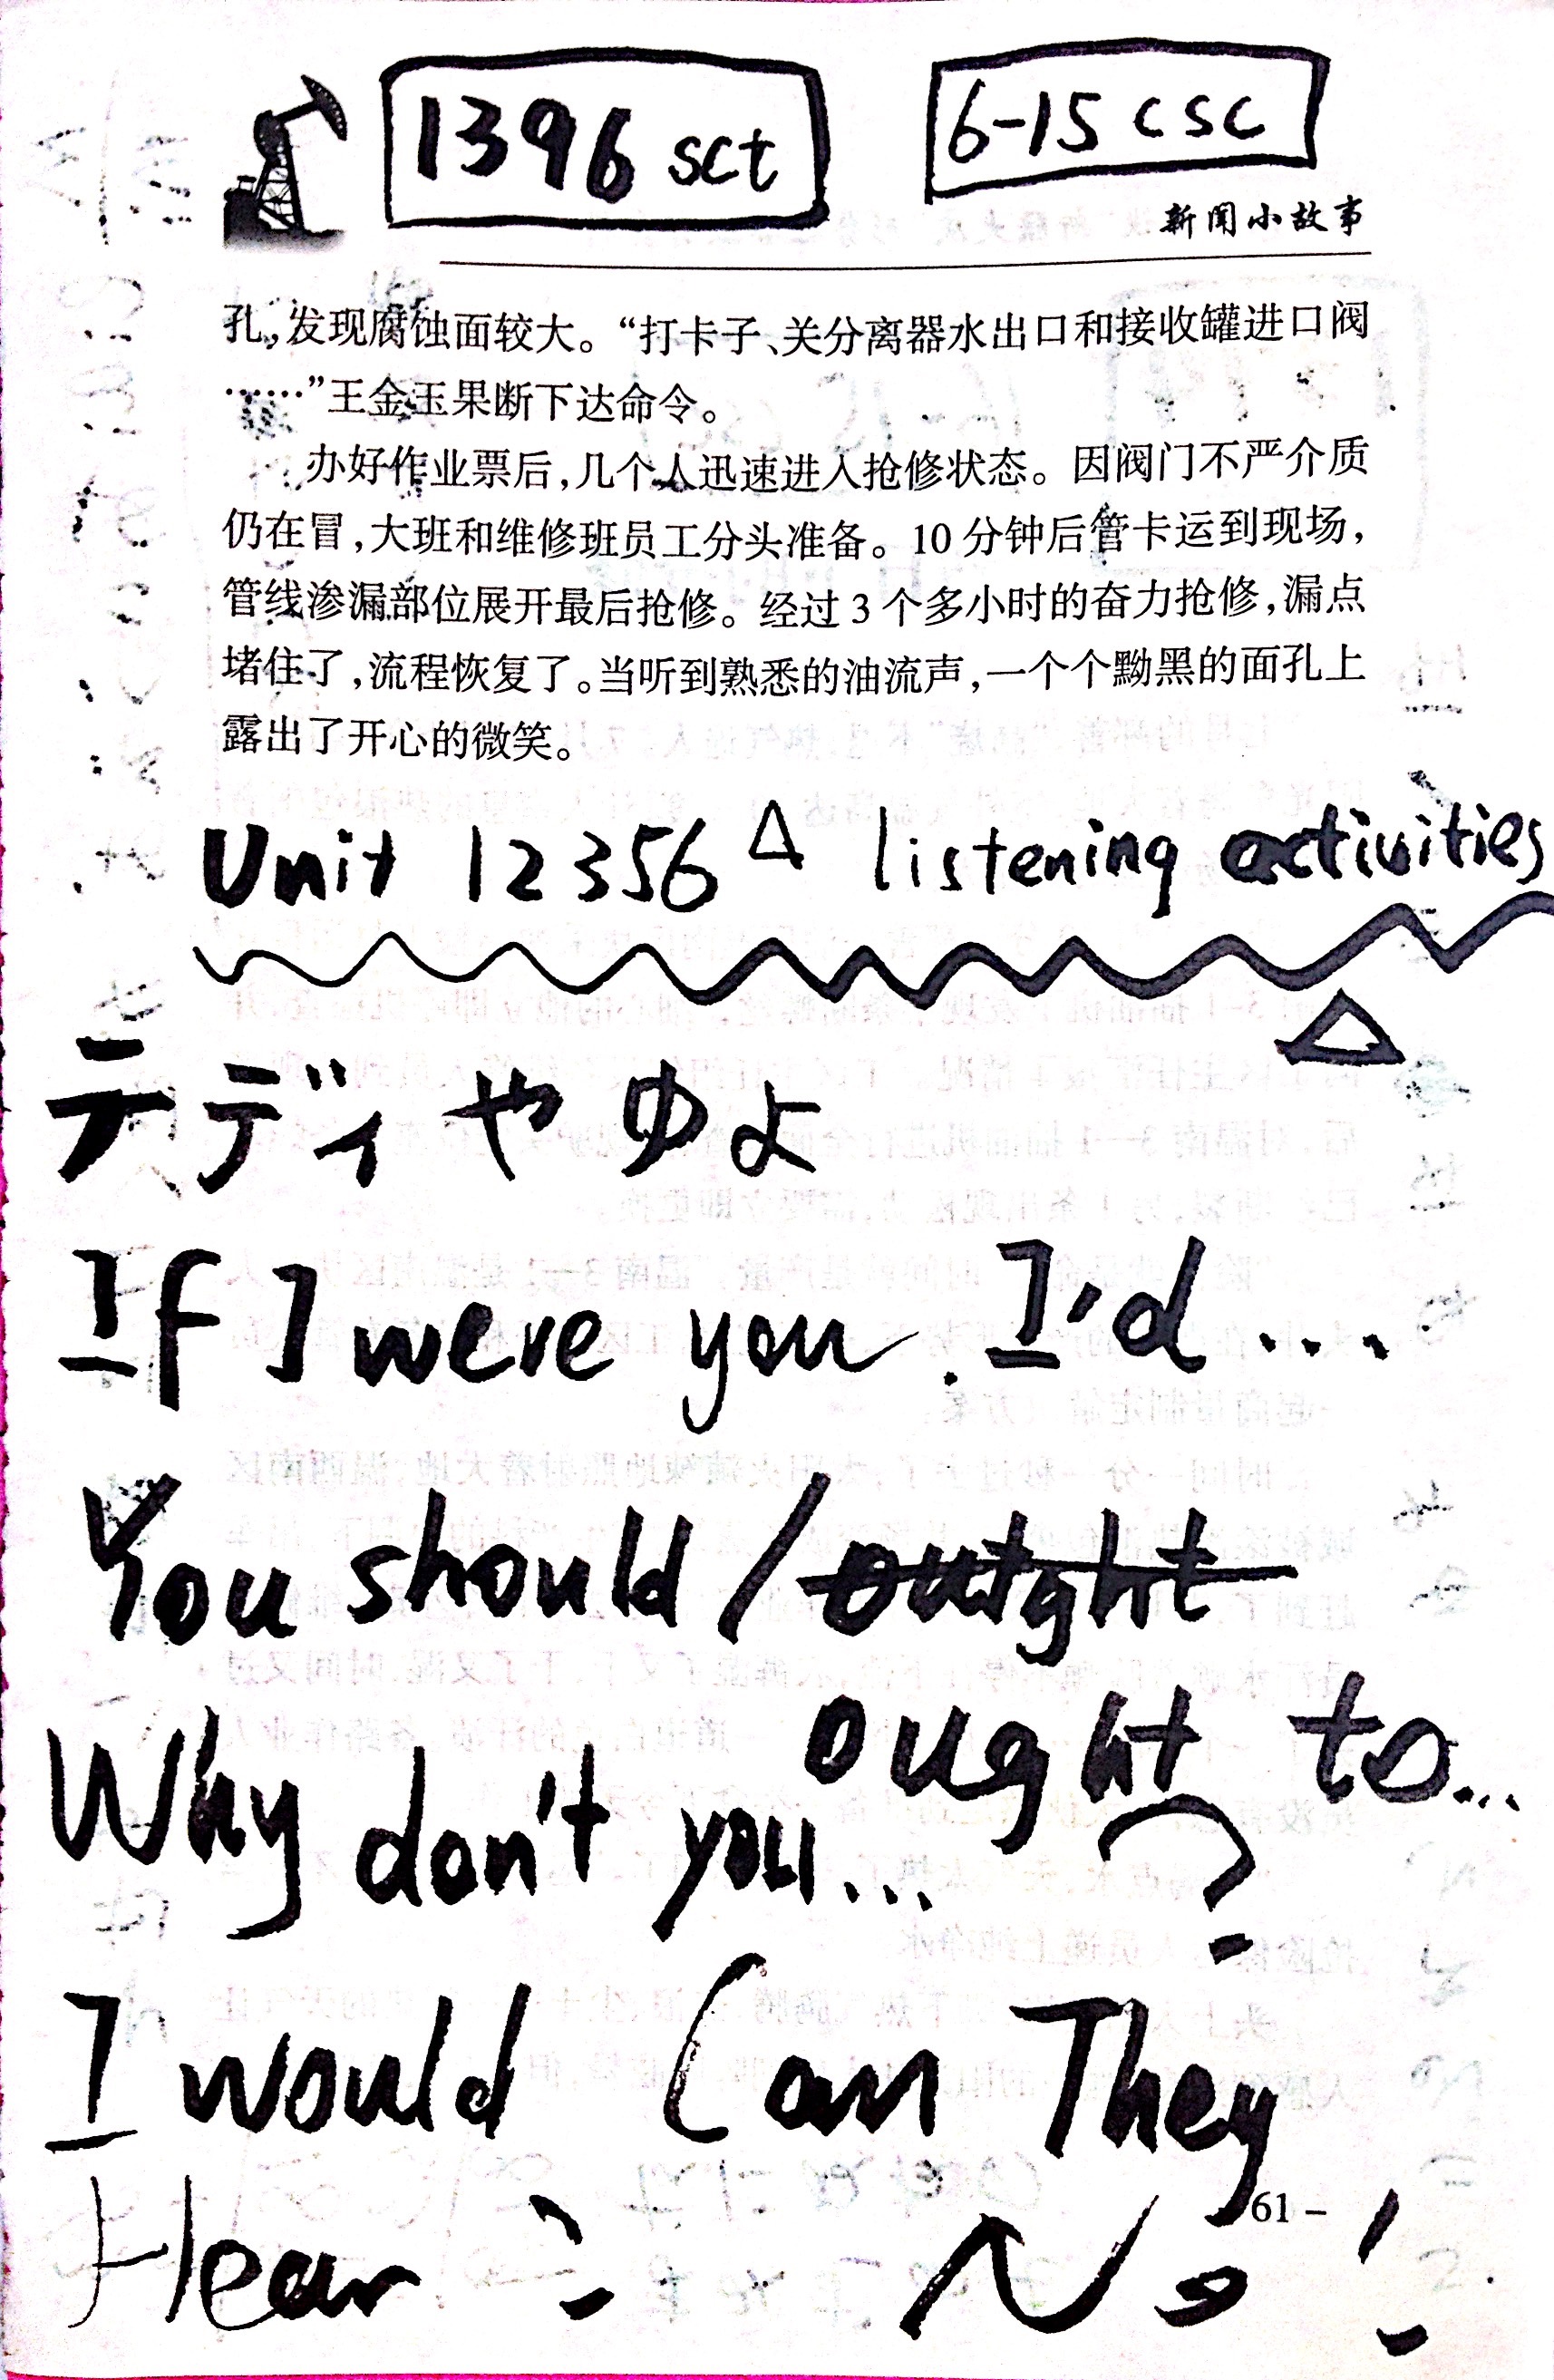 1396 sct 6-15 csc
新闻小故事
孔,发现腐蚀面较大。“打卡子、关分离器水出口和接收罐进口阀
……”王金玉果断下达命令。
办好作业票后,几个人迅速进入抢修状态。因阀门不严介质
仍在冒,大班和维修班员工分头准备。10分钟后管卡运到现场,
管线渗漏部位展开最后抢修。经过3个多小时的奋力抢修,漏点
堵住了,流程恢复了。当听到熟悉的油流声,一个个黝黑的面孔上
露出了开心的微笑。
Unit 12356 △ listening activities
△
テディやゆよ
If I were you. I'd...
You should / ought to...
Why don't you...?
I would Can They
Hear? No!
61 –